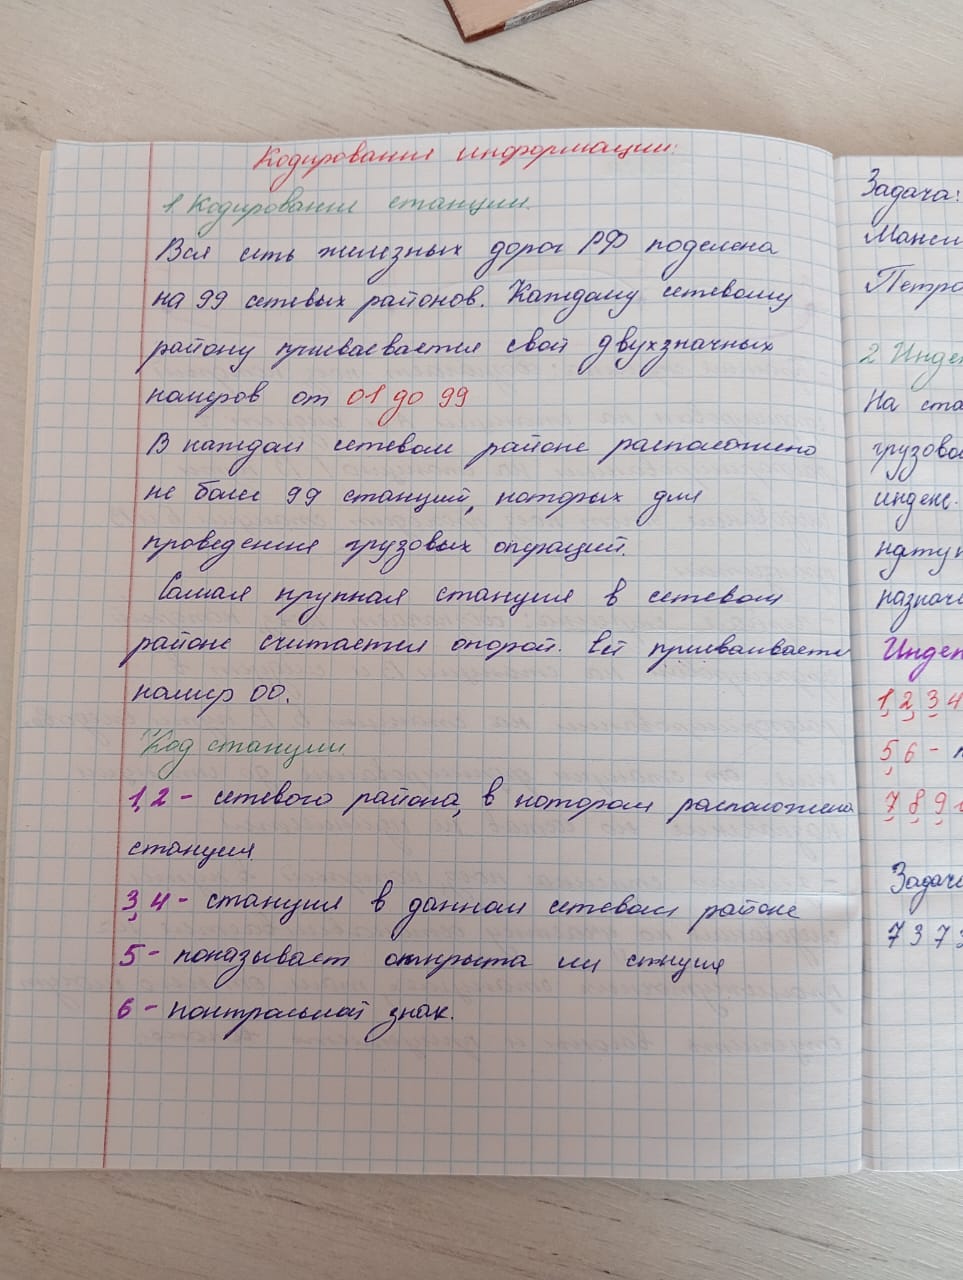 Кодирования информации:
1. Кодирования станции.
Вся сеть железных дорог РФ поделена
на 99 сетевых районов. Каждому сетевому
району присваевается свой двухзначных
номеров от 01 до 99
В каждом сетевом районе расположено
не более 99 станций, которых для
проведения грузовых операций.
Самая крупная станция в сетевом
районе считается опорой. Ей присваивается
номер 00.
Код станции
1,2 - сетевого района, в котором расположена
станция.
3,4 - станция в данном сетевом районе
5 - показывает открыта ли стнция
6 - контрольной знак.
Задача:
Макси
Петро
2 Инде
На ста
грузово
индекс.
натун
назнач
Индек
1, 2, 3 4
5, 6 -
7, 8, 9,
Задача
7 3 7